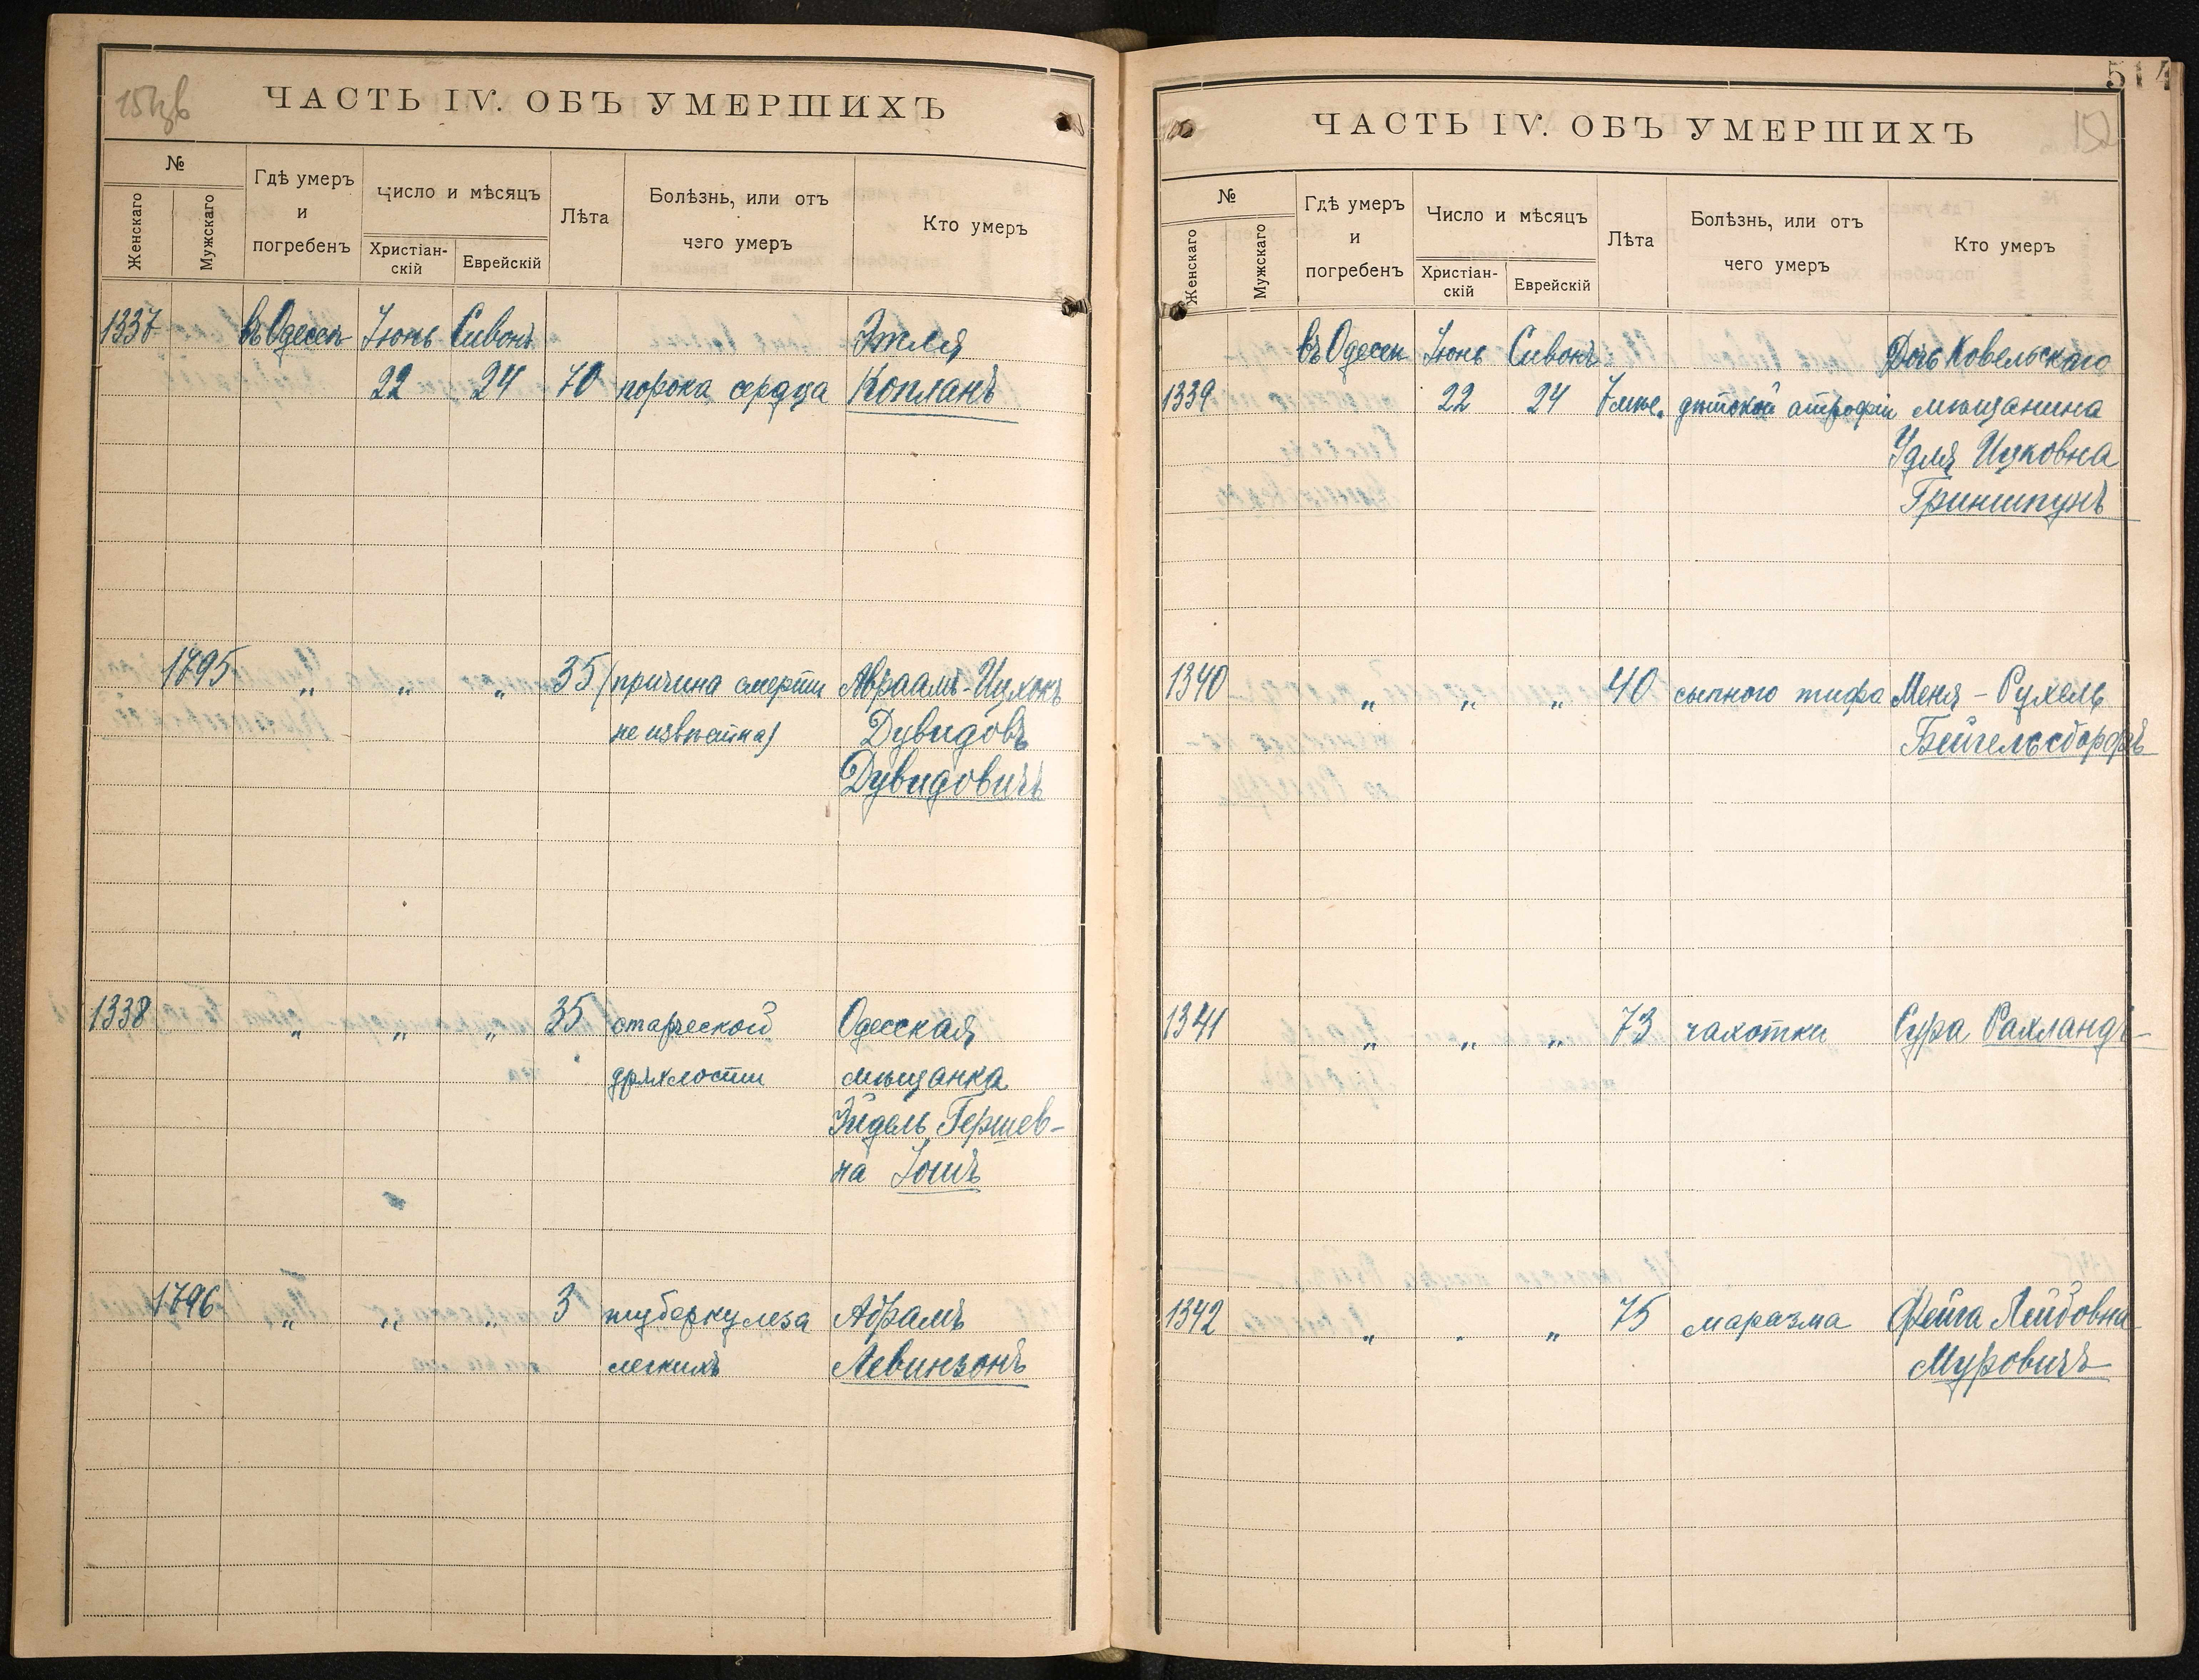 ЧАСТЬ IV. ОБЪ УМЕРШИХЪ
№
Женскаго
Мужскаго
Гдѣ умеръ
и
погребенъ
Число и мѣсяцъ
Христіан-
скій
Еврейскій
Лѣта
Болѣзнь, или отъ
чего умеръ
Кто умеръ
1337 въ Одессѣ Іюнь Сивонъ Этля
22 24 70 порока сердца Копланъ
1795 „ „ „ 35 (причина смерти Авраамъ-Ицхокъ
неизвѣстна) Дувидовъ
Дувидовичъ
1338 „ „ „ 35 старческой Одесская
дряхлости мѣщанка
Эйдель Гершев-
на Іошъ
1796 „ „ „ 3 туберкулеза Абрамъ
легкихъ Левинзонъ
514
ЧАСТЬ IV. ОБЪ УМЕРШИХЪ
152
№
Женскаго
Мужскаго
Гдѣ умеръ
и
погребенъ
Число и мѣсяцъ
Христіан-
скій
Еврейскій
Лѣта
Болѣзнь, или отъ
чего умеръ
Кто умеръ
въ Одессѣ Іюнь Сивонъ Дочь Ковельскаго
1339 22 24 7 мѣс. дѣтской атрофіи мѣщанина
Удля Ицковна
Гриншпунъ
1340 „ „ „ 40 сыпного тифа Меня-Рухель
Бейгельсдорфъ
1341 „ „ „ 73 чахотки Сура Рахландъ
1342 „ „ „ 75 маразма Фейга Лейбовна
Муровичъ